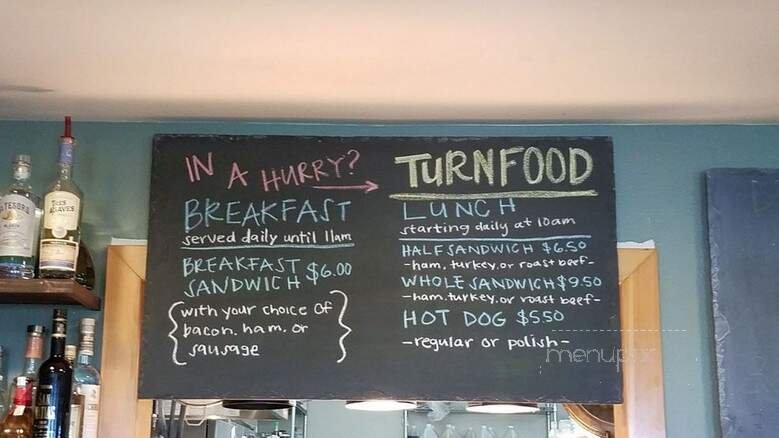 IN A HURRY?
BREAKFAST
served daily until 11am
BREAKFAST
SANDWICH $6.00
with your choice of
bacon, ham, or
sausage
TURNFOOD
LUNCH
starting daily at 10am
HALF SANDWICH $6.50
-ham, turkey, or roast beef-
WHOLE SANDWICH $9.50
-ham, turkey, or roast beef-
HOT DOG $5.50
-regular or polish-
TRES
AGAVES
menupix